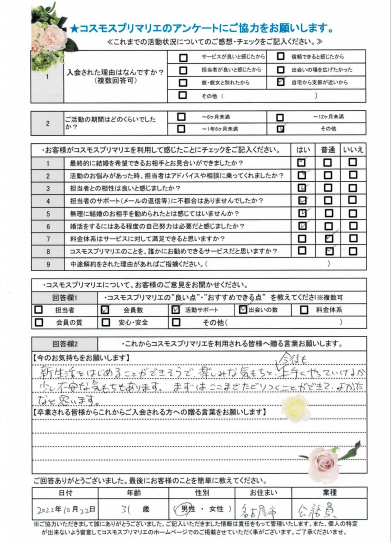 ★コスモスプリマリエのアンケートにご協力をお願いします。
≪これまでの活動状況についてのご感想・チェックをご記入ください。≫
1 入会された理由はなんですか？ （複数回答可）
サービスが良いと感じたから 信頼できると感じたから
担当者が良いと感じたから 出会いの場を広げたかった
親・彼女と別れたから 自宅から支部が近いから
その他（ ）
2 ご活動の期間はどのくらいでしたか？
～6ヶ月未満 ～12ヶ月未満
～1年6ヶ月未満 その他
・お客様がコスモスプリマリエを利用して感じたことにチェックをご記入ください。 はい 普通 いいえ
1 最終的に結婚を希望できるお相手とお見合いができましたか？
2 活動のお悩みがあった時、担当者はアドバイスや相談に乗ってくれましたか？
3 担当者との相性は良いと感じましたか？
4 担当者のサポート(メールの返信等)に不都合はありませんでしたか？
5 無理に結婚のお相手を勧められたとは感じてはいませんか？
6 婚活をするにはある程度の自己努力は必要だと感じましたか？
7 料金体系はサービスに対して満足できると思いますか？
8 コスモスプリマリエのことを、誰かにお勧めできるサービスだと思いますか？
9 中途解約をされた理由があればご指摘ください。（ ）
・コスモスプリマリエについて、お客様のご意見をお聞かせください。
回答欄1 ・コスモスプリマリエの"良い点"・"おすすめできる点" を教えてください※複数可
担当者 会員数 活動サポート 出会いの数 料金体系
会員の質 安心・安全 その他（ ）
回答欄2 ・これからコスモスプリマリエを利用される皆様へ贈る言葉お願いします。
【今のお気持ちをお願いします】
新生活をはじめることができそうで、楽しみな気持ちと、今後も上手くやっていけるか
少し不安な気持ちもあります。まずはここまでたどりつくことができて、よかった
なと思います。
【卒業される皆様からこれからご入会される方への贈る言葉をお願いします】
ご回答ありがとうございました。最後にお客様のことを簡単に教えてください。
日付 年齢 性別 お住まい 業種
2022年10月22日 31歳 男性・女性 名古屋市 公務員
※ご協力いただきまして誠にありがとうございました。ご記入いただきました情報は責任をもって管理いたします。また、個人の特定
が出来ないよう留意してコスモスプリマリエのホームページでのご掲載させていただく事がございます。ご了承ください。